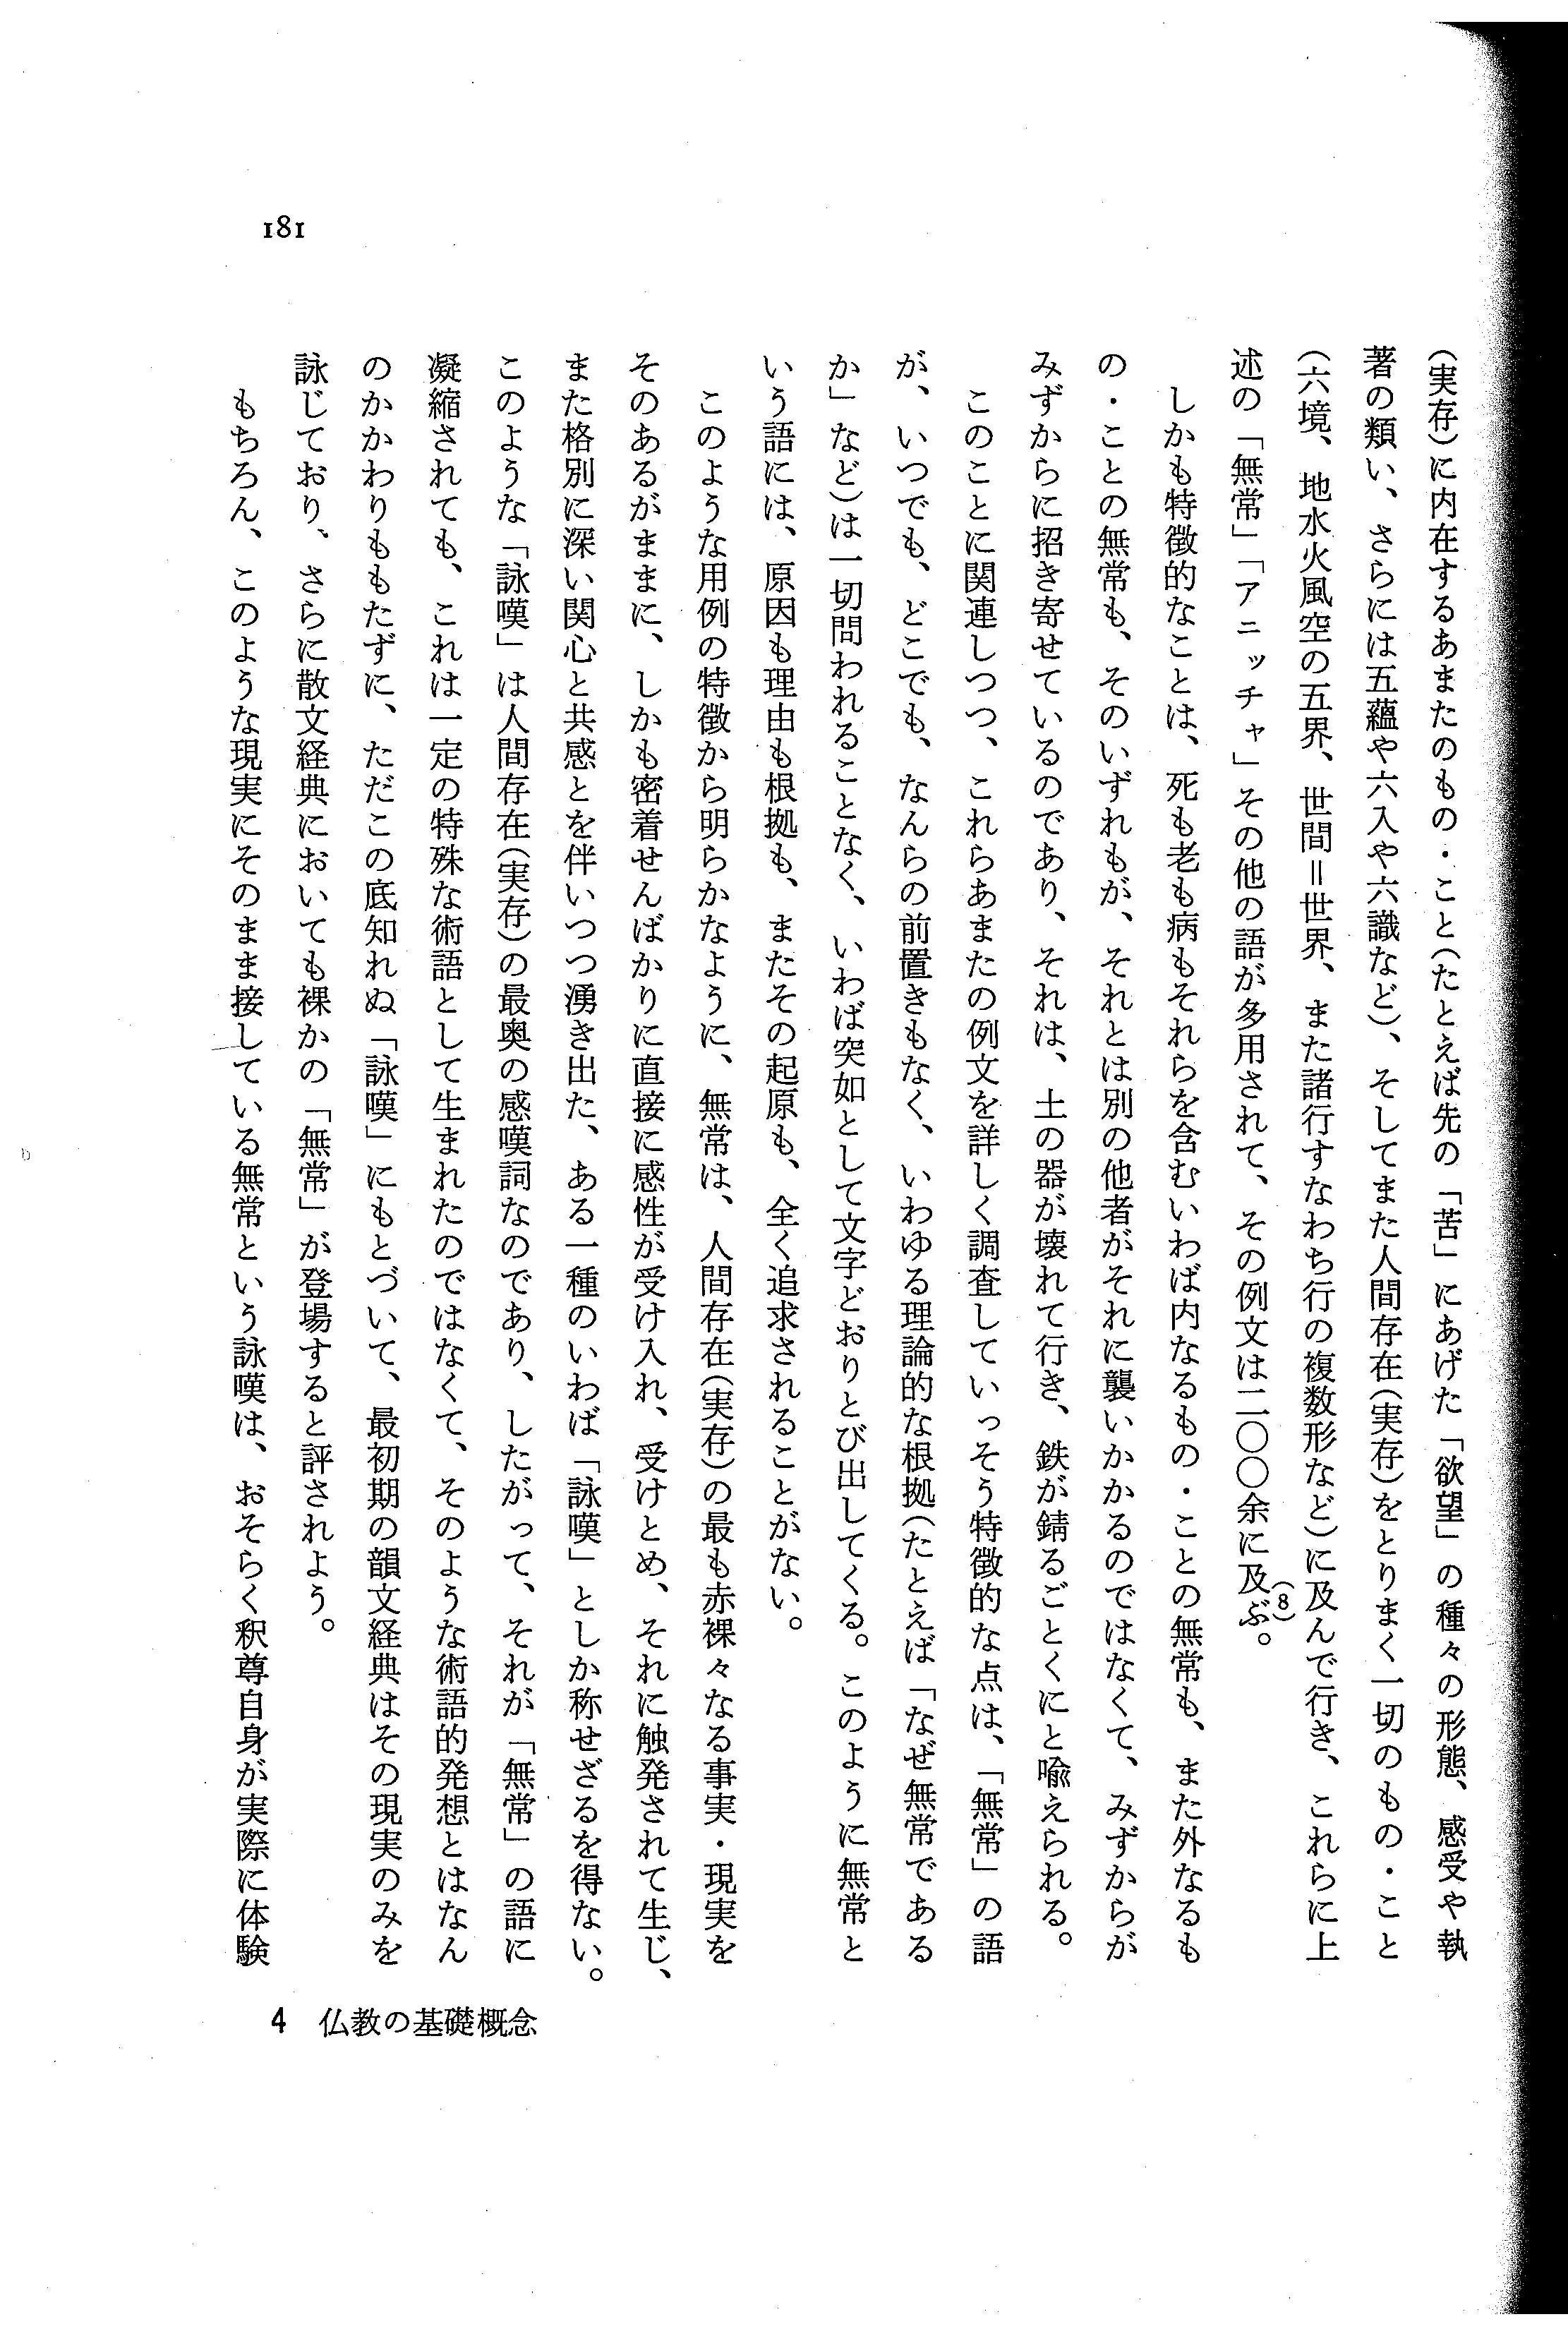 (実存)に内在するあまたのもの・こと(たとえば先の「苦」にあげた「欲望」の種々の形態、感受や執
著の類い、さらには五蘊や六入や六識など)、そしてまた人間存在(実存)をとりまく一切のもの・こと
(六境、地水火風空の五界、世間＝世界、また諸行すなわち行の複数形など)に及んで行き、これらに上
述の「無常」「アニッチャ」その他の語が多用されて、その例文は二〇〇余に及ぶ。(8)
しかも特徴的なことは、死も老も病もそれらを含むいわば内なるもの・ことの無常も、また外なるも
の・ことの無常も、そのいずれもが、それとは別の他者がそれに襲いかかるのではなくて、みずからが
みずからに招き寄せているのであり、それは、土の器が壊れて行き、鉄が錆るごとくにと喩えられる。
このことに関連しつつ、これらあまたの例文を詳しく調査していっそう特徴的な点は、「無常」の語
が、いつでも、どこでも、なんらの前置きもなく、いわゆる理論的な根拠(たとえば「なぜ無常である
か」など)は一切問われることなく、いわば突如として文字どおりとび出してくる。このように無常と
いう語には、原因も理由も根拠も、またその起原も、全く追求されることがない。
このような用例の特徴から明らかなように、無常は、人間存在(実存)の最も赤裸々なる事実・現実を
そのあるがままに、しかも密着せんばかりに直接に感性が受け入れ、受けとめ、それに触発されて生じ、
また格別に深い関心と共感とを伴いつつ湧き出た、ある一種のいわば「詠嘆」としか称せざるを得ない。
このような「詠嘆」は人間存在(実存)の最奥の感嘆詞なのであり、したがって、それが「無常」の語に
凝縮されても、これは一定の特殊な術語として生まれたのではなくて、そのような術語的発想とはなん
のかかわりももたずに、ただこの底知れぬ「詠嘆」にもとづいて、最初期の韻文経典はその現実のみを
詠じており、さらに散文経典においても裸かの「無常」が登場すると評されよう。
もちろん、このような現実にそのまま接している無常という詠嘆は、おそらく釈尊自身が実際に体験
181
4 仏教の基礎概念